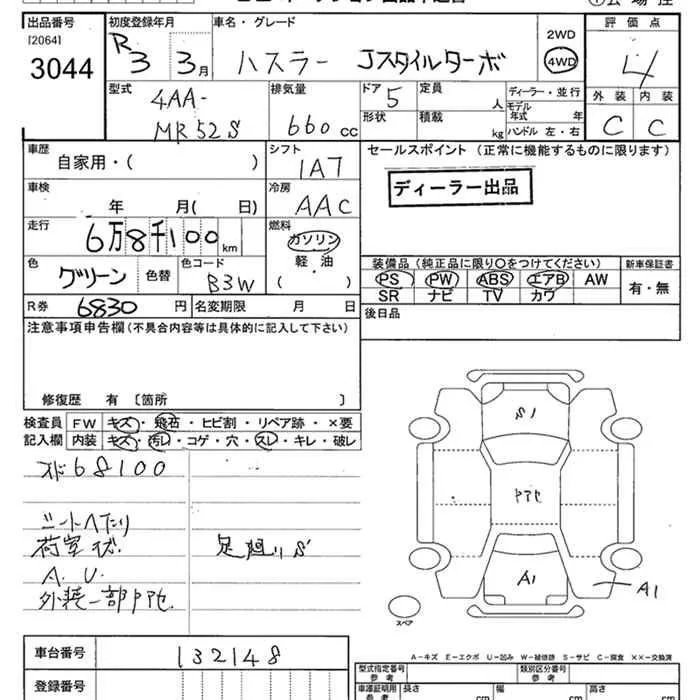 出品番号 初度登録年月 車名・グレード 2WD 評価点
[2064] R3 3月 ハスラー Jスタイルターボ 4WD 4
3044
型式 排気量 ドア 定員 ディーラー・並行 外装 内装
4AA- 5 人 モデル年式 年
MR52S 660cc 形状 積載 kg ハンドル 左・右 C C
車歴 シフト セールスポイント (正常に機能するものに限ります)
自家用・( ) IA7
ディーラー出品
車検 冷房
年 月( 日) AAC
走行 燃料
6万8千100km ガソリン
軽・油
( )
色 色替 色コード
グリーン B3W
装備品 (純正品に限り○をつけてください) 新車保証書
PS PW ABS エアB AW 有・無
SR ナビ TV カワ
R券 6830円 名変期限 月 日
後日品
注意事項申告欄(不具合内容等は具体的に記入して下さい)
修復歴 有 〔箇所 〕
検査員 FW キズ・飛石・ヒビ割・リペア跡・×要
記入欄 内装 キズ・汚レ・コゲ・穴・スレ・キレ・破レ
68100
シートへたり
荷室キズ 足廻りS
A.U.
外装一部PTセ
S1
PTセ
A1
A1
スペア
A-キズ E-エクボ U-凹み W-補修跡 S-サビ C-腐食 ××-交換済
車台番号 132148
登録番号
型式指定番号 参考 類別区分番号 参考
車庫証明用 参考 長さ cm 幅 cm 高さ cm